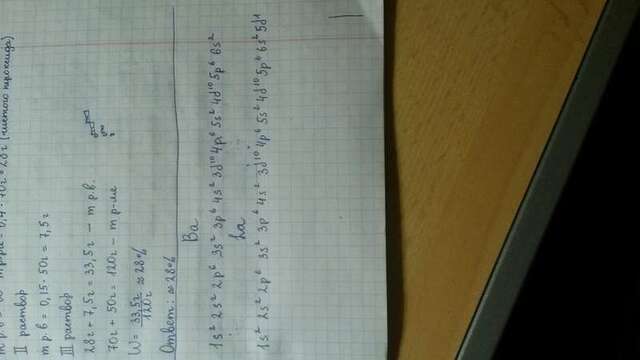 m р.в = 0,4 · 70г = 28г (чистого гидроксида)
II раствор
m р.в = 0,15 · 50г = 7,5г
III раствор
28г + 7,5г = 33,5г – m р.в.
70г + 50г = 120г – m р-ла
W = 33,5г / 120г ≈ 28%
Ответ: ≈ 28%
Ba
1s² 2s² 2p⁶ 3s² 3p⁶ 4s² 3d¹⁰ 4p⁶ 5s² 4d¹⁰ 5p⁶ 6s²
La
1s² 2s² 2p⁶ 3s² 3p⁶ 4s² 3d¹⁰ 4p⁶ 5s² 4d¹⁰ 5p⁶ 6s² 5d¹